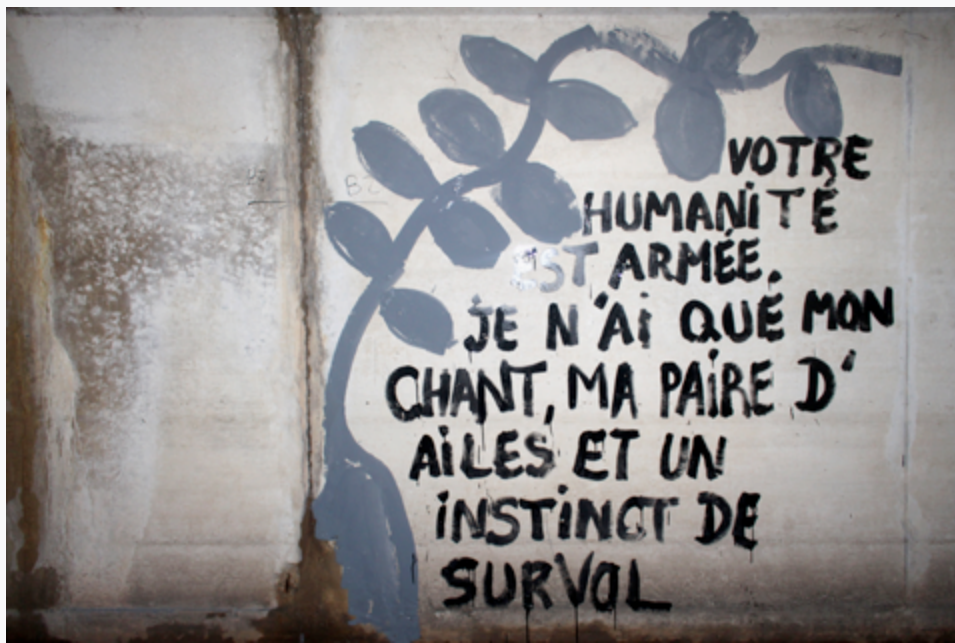 VOTRE
HUMANITÉ
EST ARMÉE.
JE N'AI QUE MON
CHANT, MA PAIRE D'
AILES ET UN
INSTINCT DE
SURVOL